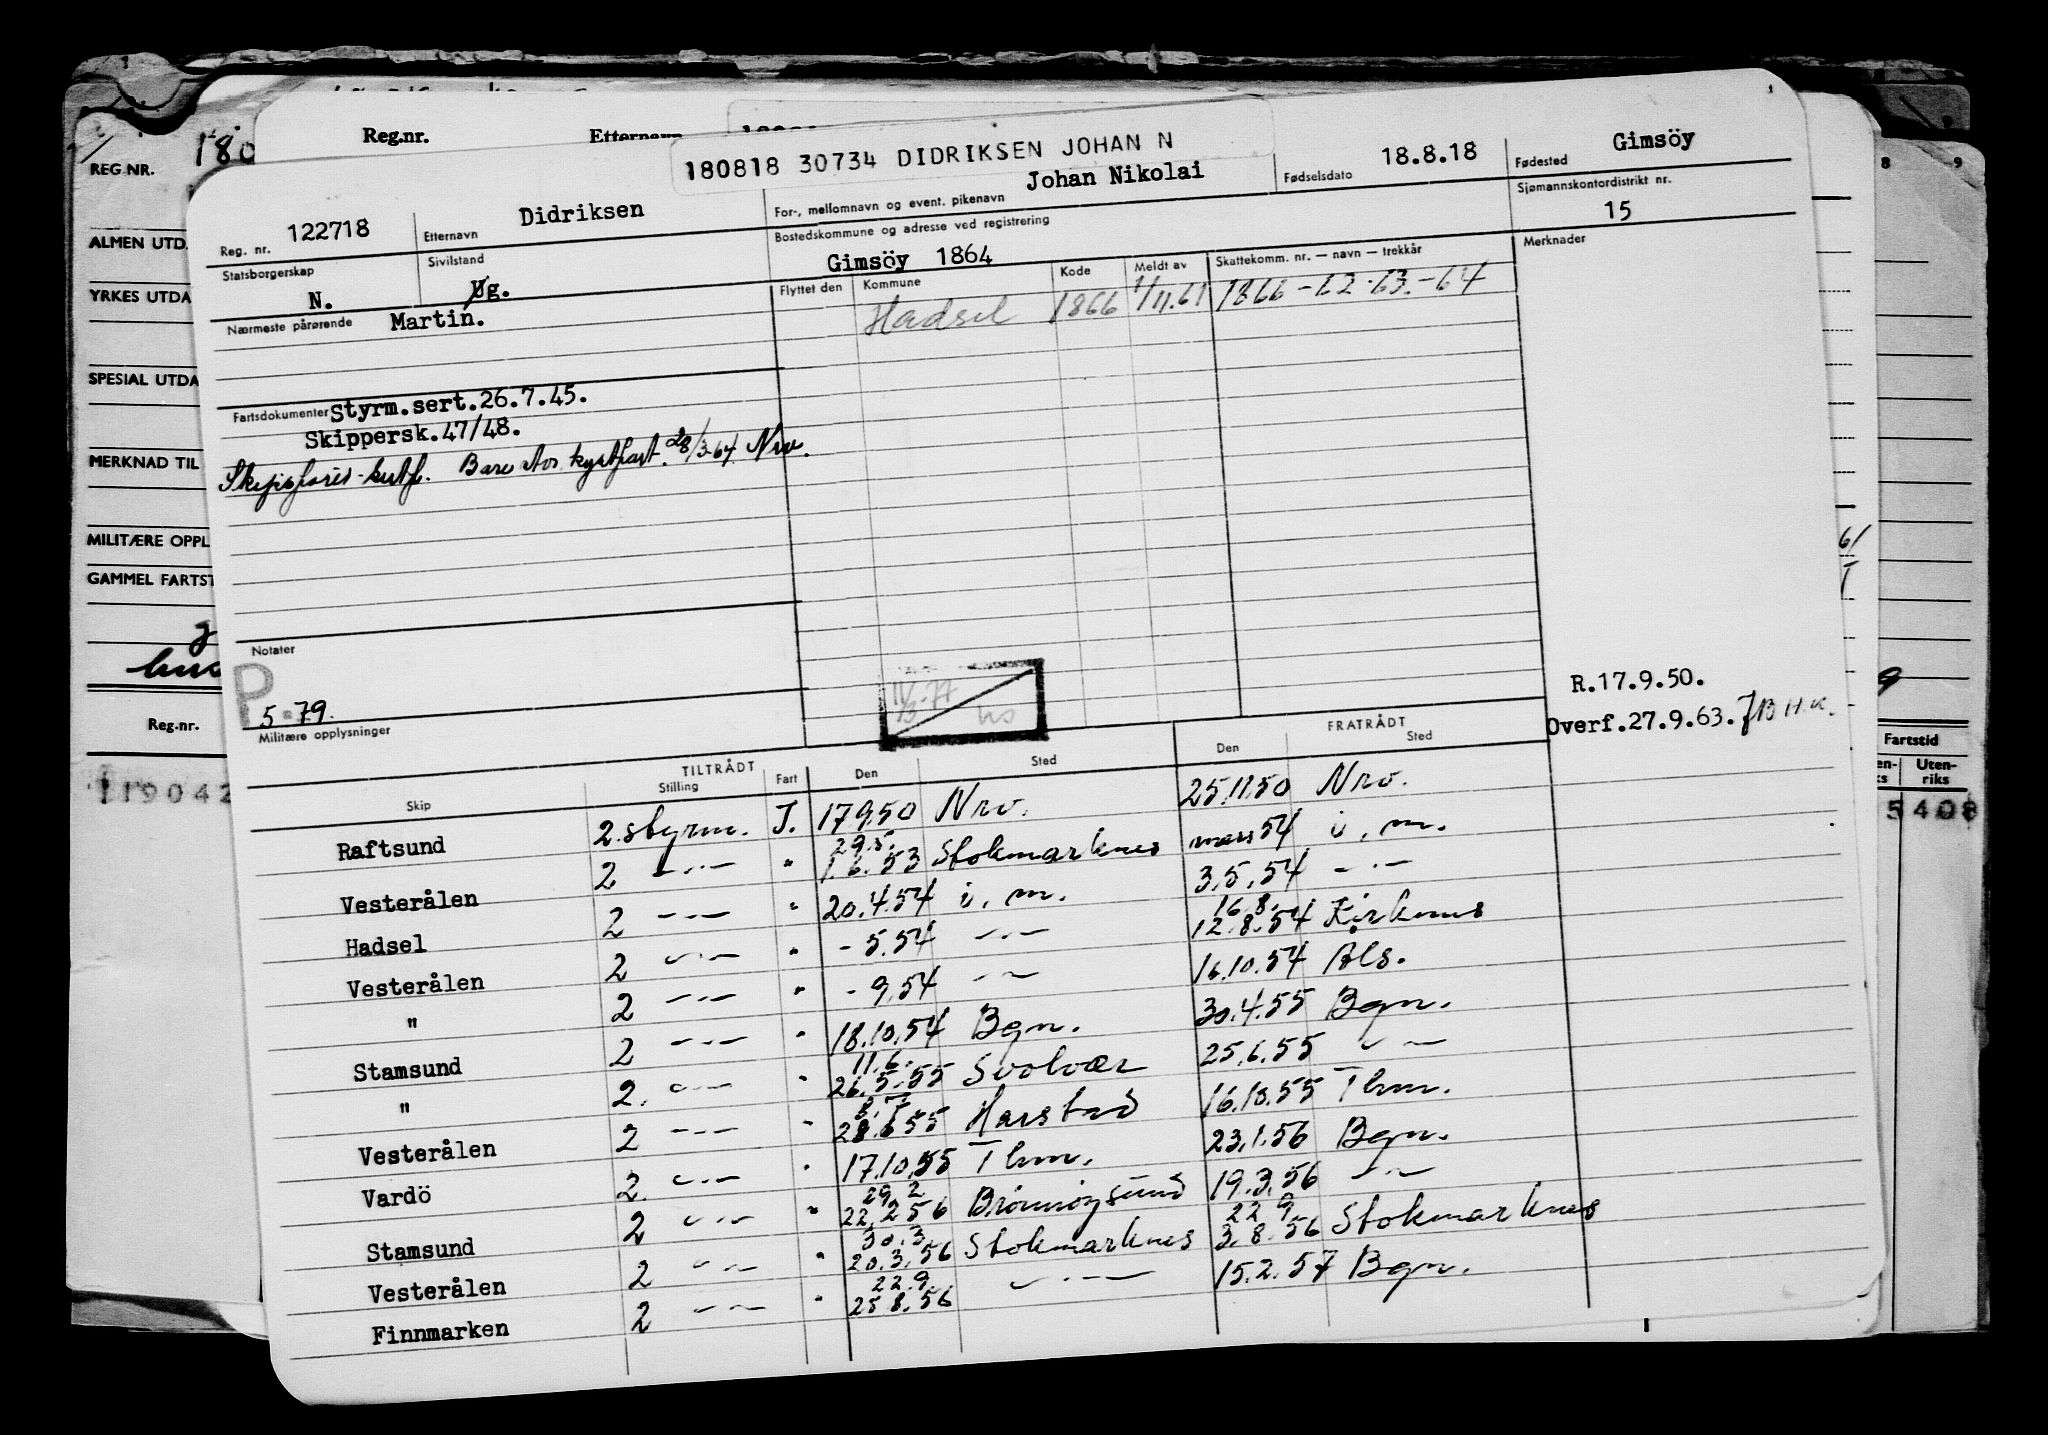 REG NR.
180
ALMEN UTD.
YRKES UTDA
SPESIAL UTDA
MERKNAD TIL
MILITÆRE OPPL
GAMMEL FARTST
Reg.nr.
119042
Reg.nr. Etternavn
180818 30734 DIDRIKSEN JOHAN N
Reg. nr. 122718 Etternavn Didriksen For-, mellomnavn og event. pikenavn Johan Nikolai Fødselsdato 18.8.18 Fødested Gimsöy
Statsborgerskap N. Sivilstand Ug. Bostedskommune og adresse ved registrering Gimsöy 1864 Sjømannskontordistrikt nr. 15
Nærmeste pårørende Martin. Flyttet den Kommune Kode Meldt av Skattekomm. nr. — navn — trekkår Merknader
Hadsel 1866 1/11.61 1866-62-63.-64
Fartsdokumenter Styrm.sert.26.7.45.
Skippersk.47/48.
Bare kystfart. 28/3-64 Nrv.
Notater
P
5-79.
Militære opplysninger
R.17.9.50.
Overf.27.9.63.
TILTRÅDT FRATRÅDT
Skip Stilling Fart Den Sted Den Sted
Raftsund 2.styrm. I. 17.9.50 Nrv. 25.11.50 Nrv.
Vesterålen 2 —·— " 29.5. 1.6.53 Stokmarknes mars 54 i. m.
Hadsel 2 —·— " 20.4.54 i. m. 3.5.54 —·—
Vesterålen 2 —·— " - 5.54 —·— 16.8. 12.8.54 Kirkenes
" 2 —·— " - 9.54 —·— 16.10.54 Als.
Stamsund 2 —·— " 18.10.54 Bgn. 30.4.55 Bgn.
" 2. —·— " 11.6. 26.5.55 Svolvær 25.6.55 —·—
Vesterålen 2 —·— " 28.6.55 Harstad 16.10.55 Thm.
Vardö 2. —·— " 17.10.55 Thm. 23.1.56 Bgn.
Stamsund 2 —·— " 29.2 22.2.56 Brönnöysund 19.3.56 —·—
Vesterålen 2 —·— " 30.3. 20.3.56 Stokmarknes 22 9 3.8.56 Stokmarknes
Finnmarken 2 —·— " 22.9. 25.8.56 —·— 15.2.57 Bgn.
8 9
Fartstid
Uten-
riks
5408